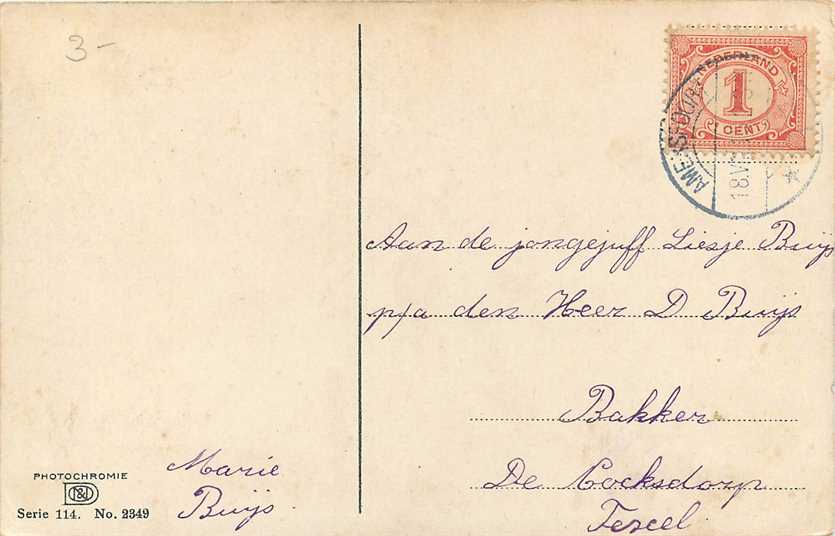 3-
NEDERLAND
1
1 CENT
AMERSFOORT
18.V
Aan de jongejuff Liesje Buijs
p/a den Heer D Buijs
Bakker
De Cocksdorp
Texel
Marie
Buijs
PHOTOCHROMIE
Serie 114. No. 2349